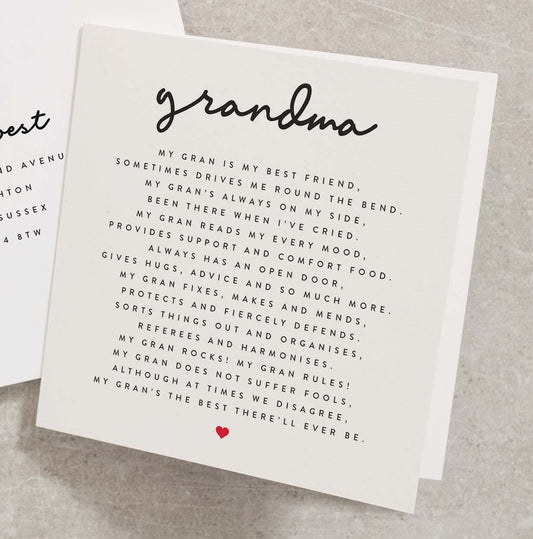 est
AVENU
SUSSEX
4 8TW
grandma
MY GRAN IS MY BEST FRIEND,
SOMETIMES DRIVES ME ROUND THE BEND.
MY GRAN'S ALWAYS ON MY SIDE,
BEEN THERE WHEN I'VE CRIED.
MY GRAN READS MY EVERY MOOD,
PROVIDES SUPPORT AND COMFORT FOOD.
ALWAYS HAS AN OPEN DOOR,
GIVES HUGS, ADVICE AND SO MUCH MORE.
MY GRAN FIXES, MAKES AND MENDS,
PROTECTS AND FIERCELY DEFENDS.
SORTS THINGS OUT AND ORGANISES,
REFEREES AND HARMONISES.
MY GRAN ROCKS! MY GRAN RULES!
MY GRAN DOES NOT SUFFER FOOLS,
ALTHOUGH AT TIMES WE DISAGREE,
MY GRAN'S THE BEST THERE'LL EVER BE.